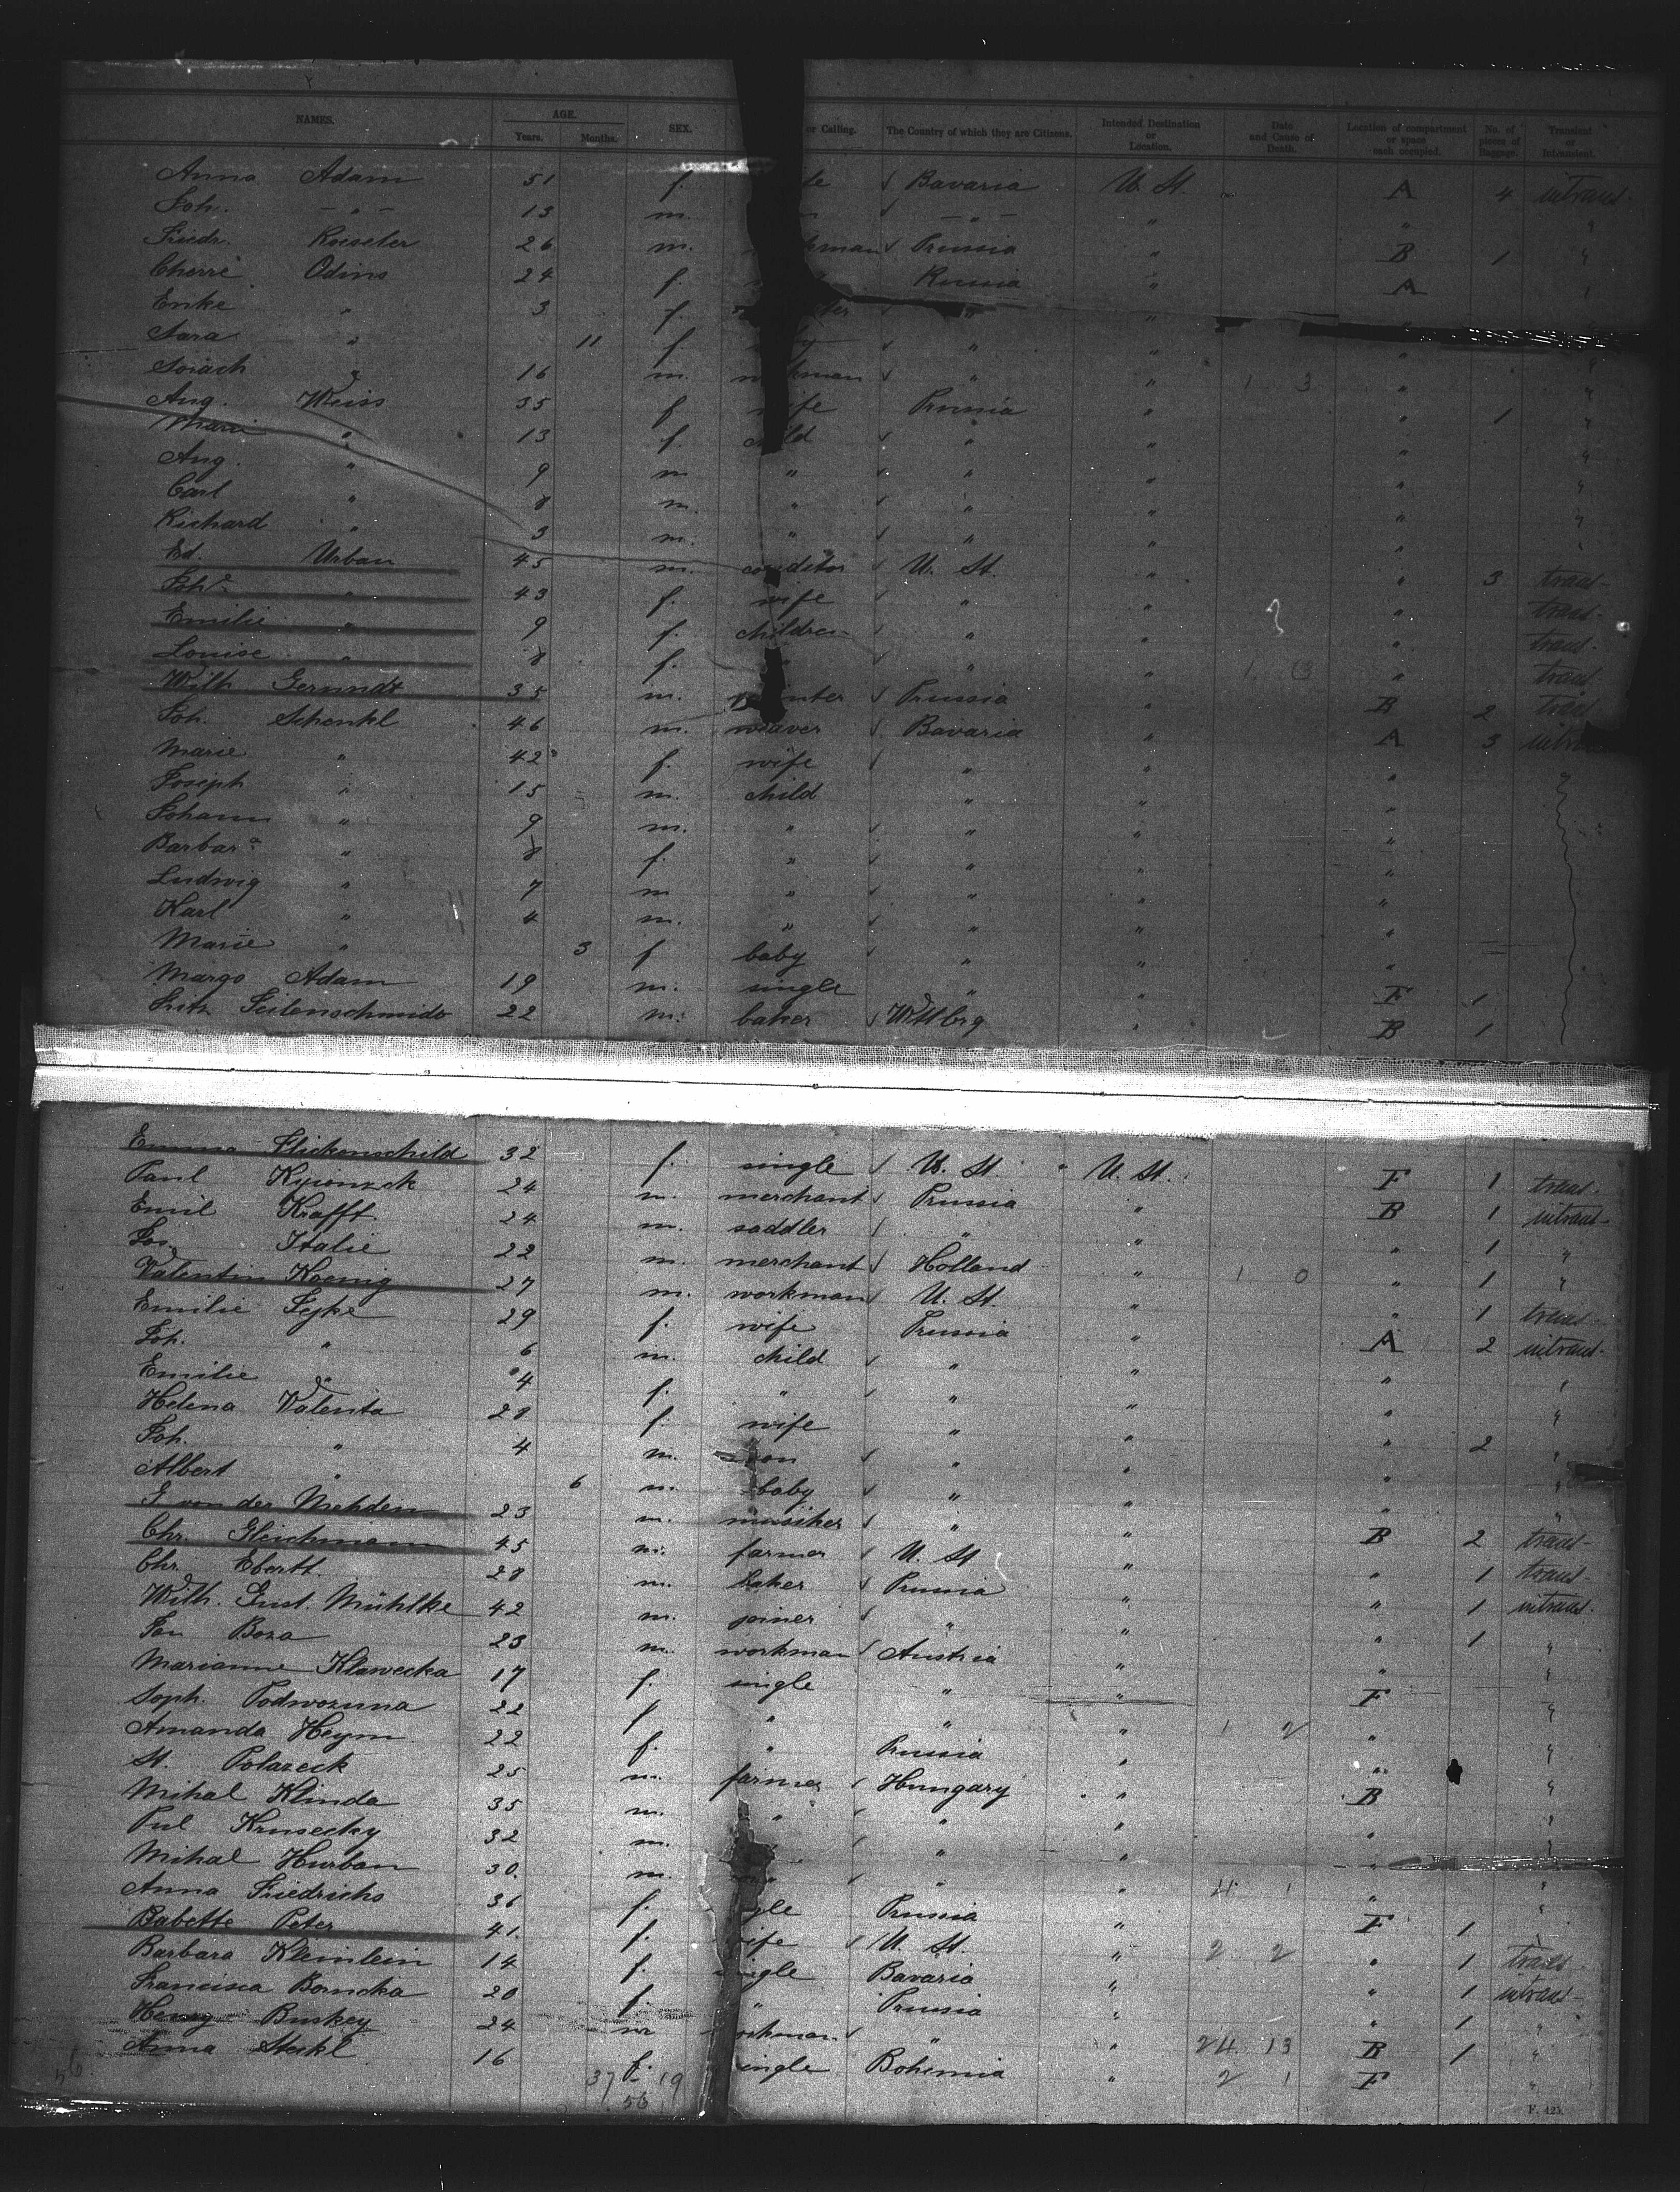 NAMES. AGE. Years. Months. SEX. or Calling. The Country of which they are Citizens. Intended Destination or Location. Date and Cause of Death. Location of compartment or space each occupied. No. of pieces of Baggage. Transient or Intransient.
Anna Adam 51 f. Bavaria U. St. A 4 intrans-
Joh. -"- 13 m. -"- " " "
Friedr. 26 m. kman Prussia " B 1 "
Cherre Odins 24 f. Russia " A
Enke " 3 f. ter " "
Sara " 11 f. by " " " "
" 16 m. workman " " 1 3 " "
Aug. Weiss 35 f wife Prussia " " 1 "
Marie " 13 f. child " " " "
Aug. " 9 m " " " " "
Carl " 8 m. " " " " "
Richard " 3 m. " " " "
Ed. Urban 45 m. conditor U. St. " " 3 trans-
Joh. " 43 f. wife " " " trans-
Emilie " 9 f. children " " " trans-
Louise " 8 f. " " " 1 13 " trans
Wilh Gerundt 35 m. Prussia " B 2 trans
Joh. Schenkl 46 m. weaver Bavaria " A 3 intra
Marie " 42 f. wife " " " "
Joseph " 15 m. child " " "
Johann " 9 m. " " " "
Barbara " 8 f. " " " "
Ludwig " 7 m " " " "
Karl " 4 m. " " " "
Marie " 3 f baby " " "
Margo Adam 19 m. single " " F 1
Fritz Seilenschmidt 22 m. baker Wttbrg " B 1
Emma Flickenschild 32 f. single U. St. U. St. F 1 trans-
Paul 24 m. merchant Prussia " B 1 intrans-
Emil Krafft 24 m. saddler " " " 1 "
Jos. Italie 22 m. merchant Holland " 1 0 " 1 "
Valentin Koenig 27 m. workman U. St. " " 1 trans-
Emilie 29 f. wife Prussia " A 2 intrans-
Joh. " 6 m. child " " " "
Emilie " 4 f. " " " " "
Helena Valenta 28 f. wife " " " 2 "
Joh. " 4 m. son " " " "
Albert " 6 m. baby " " " "
G von der Mehden 23 m. musiker " " B 2 trans-
Chr. Gleichmann 45 m. farmer U. St " " 1 trans-
Chr. Ebertt. 28 m. baker Prussia " " 1 intrans-
Wilh. Gust. Mühlke 42 m. joiner " " " 1 "
Jan Boza 23 m. workman Austria " " "
Marianne Klawecka 17 f. single " " F "
Soph. Podwozuna 22 f " " " 1 2 " "
Amanda Heym 22 f. " Prussia " " "
St. Polazeck 25 m. farmer Hungary " B "
Mihal Klinda 35 m. " " " " "
Pul Krusecky 32 m. " " " "
Mihal Hurban 30 m. " " " 4 1 " "
Anna Friedrichs 36 f. gle Prussia " F 1 "
Babette Peter 41 f. wife U. St. " 2 2 " 1 trans
Barbara Kleinlein 14 f. single Bavaria " " 1 intrans-
Francisca Borncka 20 f. " Prussia " " 1 "
Henry Buskey 24 m workman " " 24 13 B 1 "
Anna Stekl 16 f. single Bohemia " 2 1 F "
37 19
56
F. 425.